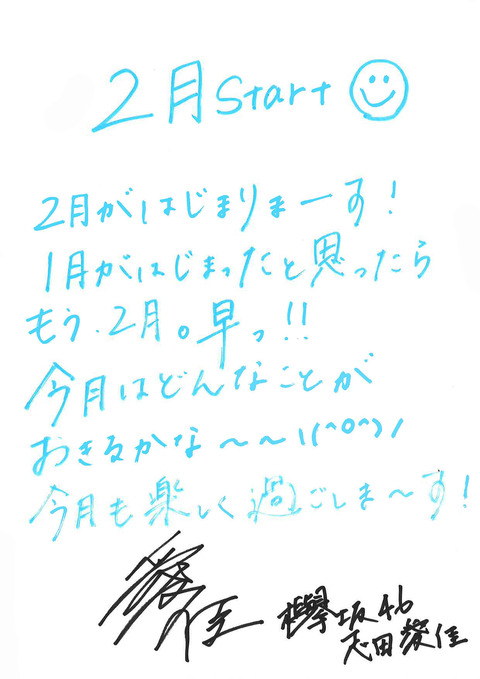 2月start
2月がはじまりまーす！
1月がはじまったと思ったら
もう、2月。早っ!!
今月はどんなことが
おきるかな〜〜\(^o^)/
今月も楽しく過ごしま〜す！
愛佳
欅坂46
志田愛佳